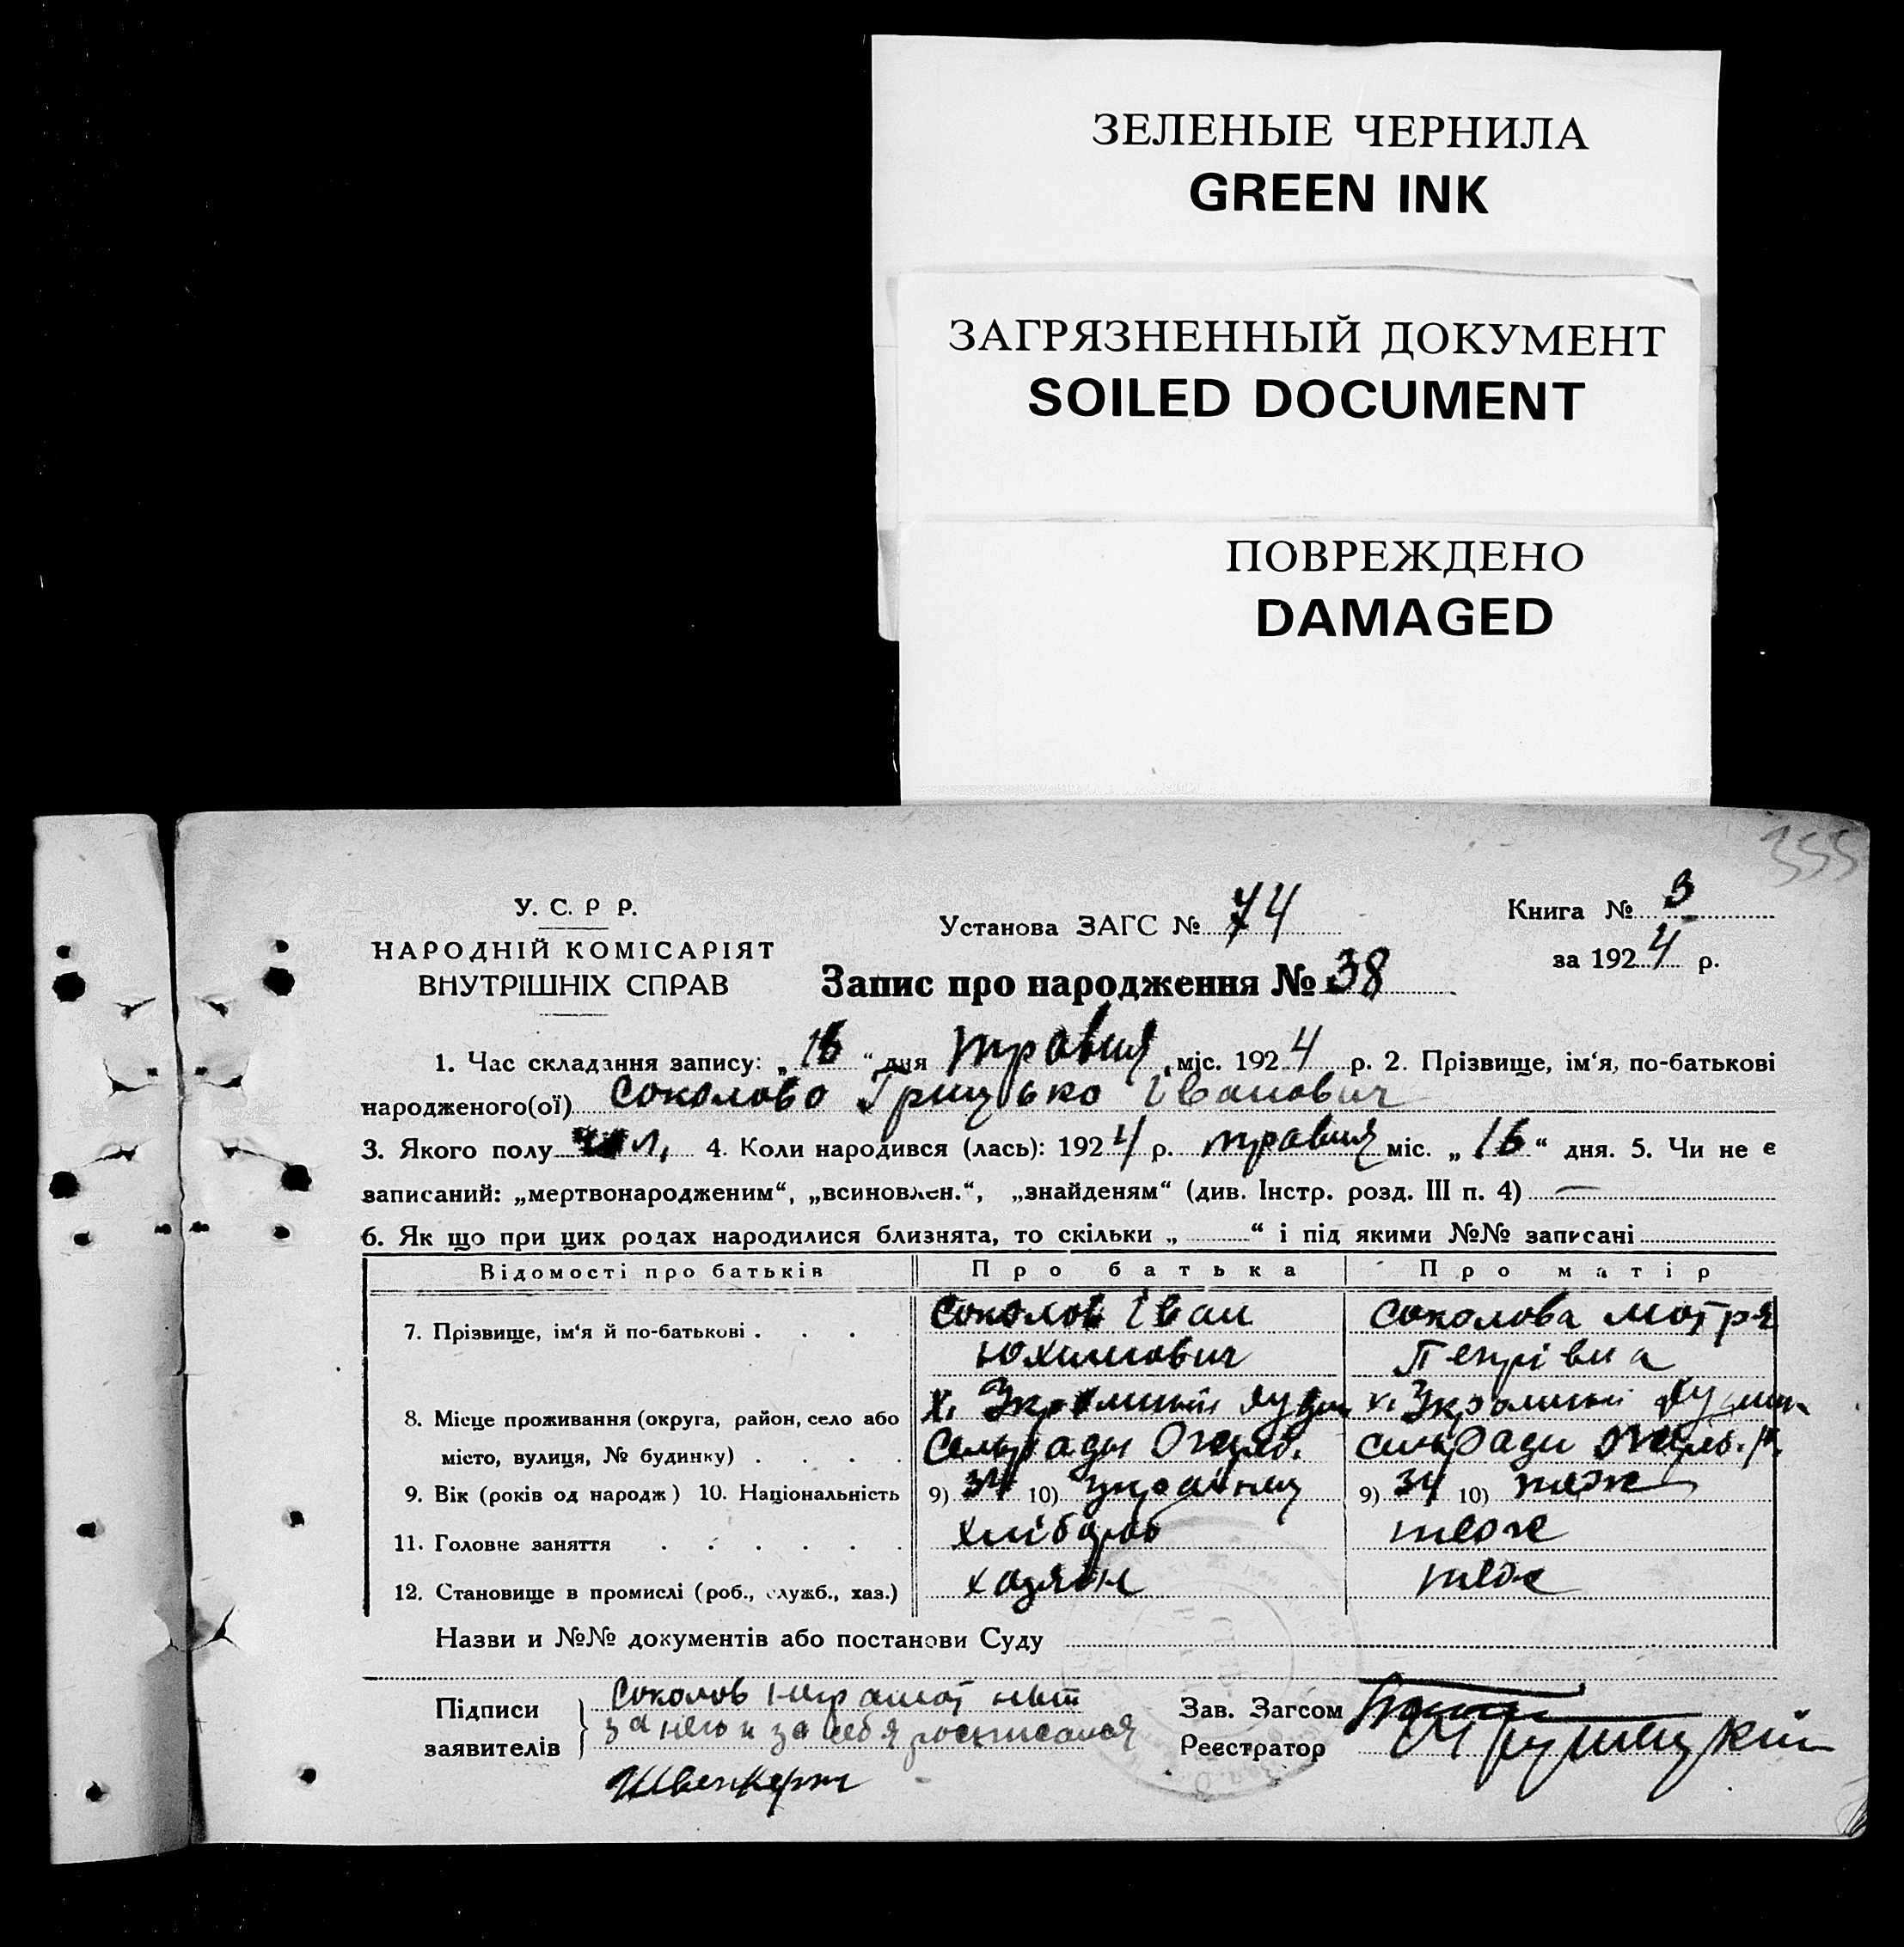 ЗЕЛЕНЫЕ ЧЕРНИЛА
GREEN INK
ЗАГРЯЗНЕННЫЙ ДОКУМЕНТ
SOILED DOCUMENT
ПОВРЕЖДЕНО
DAMAGED
355
У. С. Р Р.
НАРОДНІЙ КОМІСАРІЯТ
ВНУТРІШНІХ СПРАВ
Установа ЗАГС № 74
Запис про народження № 38
Книга № 3
за 1924 р.
1. Час складання запису: „16“ дня травня міс. 1924 р. 2. Прізвище, ім‘я, по-батькові
народженого(ої) Соколово Грицько Іванович
3. Якого полу чол, 4. Коли народився (лась): 1924 р. травня міс. „16“ дня. 5. Чи не є
записаний: „мертвонародженим“, „всиновлен.“, „знайденям“ (див. Інстр. розд. III п. 4) —
6. Як що при цих родах народилися близнята, то скільки „ “ і під якими №№ записані
Відомості про батьків Про батька Про матір
7. Прізвище, ім‘я й по-батькові . . . . Соколов Іван Соколова Мотря
Юхимович Петрівна
8. Місце проживання (округа, район, село або х.
місто, вулиця, № будинку) . . . . Сельради сельради
9. Вік (років од народж) 10. Національність 9) 34 10) Українец 9) 34 10) теж
11. Головне заняття . . . . . . хлібороб теж
12. Становище в промислі (роб., служб., хаз.) хазяїн теж
Назви и №№ документів або постанови Суду
Підписи Соколов
заявителів за него и за себя росписался
Зав. Загсом
Реєстратор